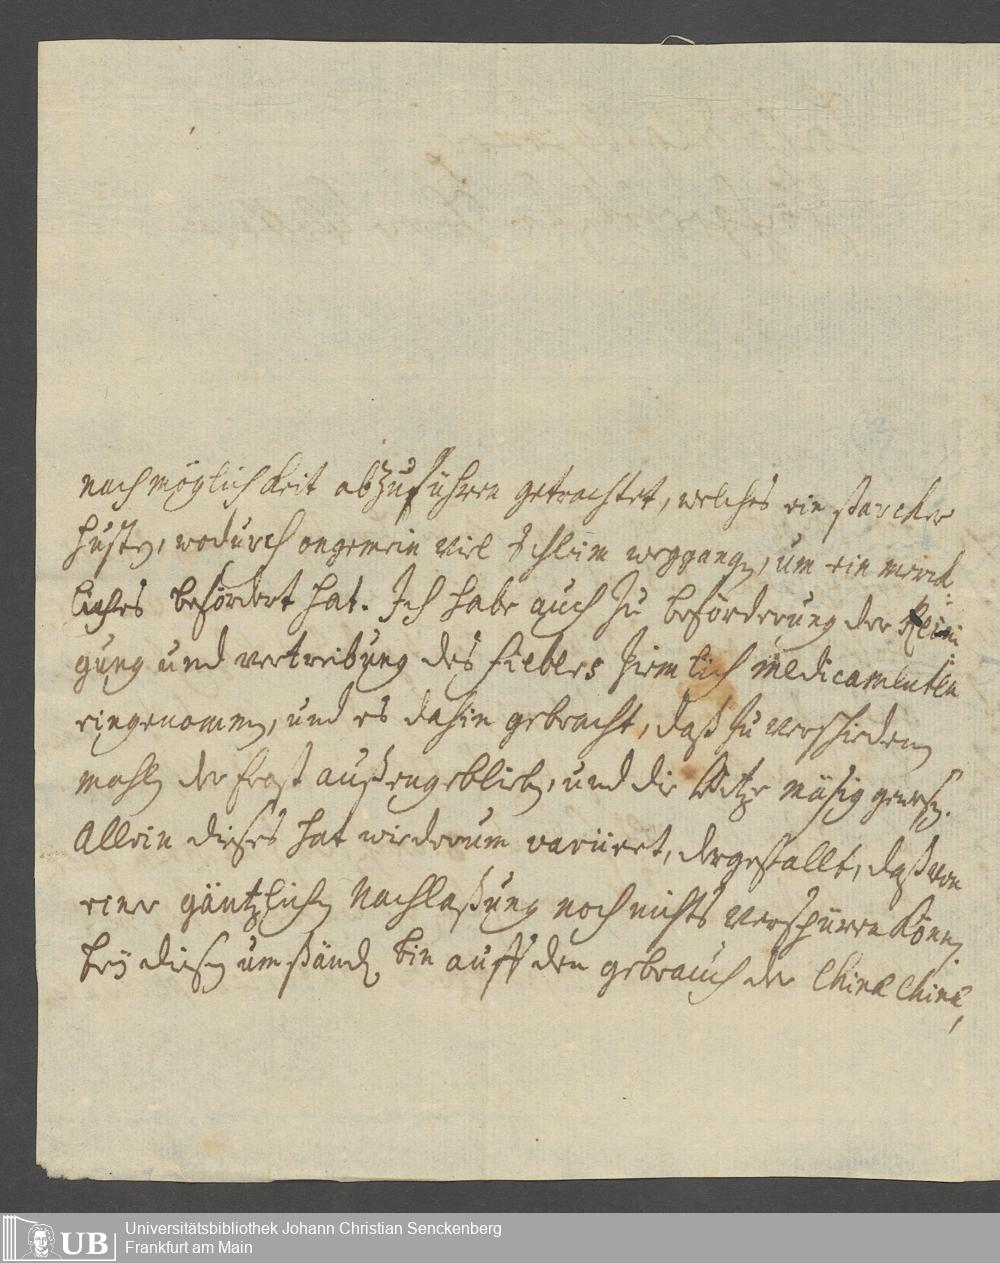 nach möglichkeit abzuführen getrachtet, welches ein starcker
Husten, wodurch ongemein viel schleim weggangen, um ein merck
liches befördert hat. Ich habe auch zu beförderung der Reini
gung und vertreibung des fiebers ziemlich medicamenten
eingenommen, und es dahin gebracht, daß zu verschiedenen
mahlen der frost außengeblieben, und die Hitze mäsig gewesen.
Allein dieses hat wiederum variiret, dergestallt, daß von
einer gäntzlichen Nachlaßung noch nichts verspüren können
bey diesen umständen bin auff den gebrauch der Chinæ Chinæ,
Universitätsbibliothek Johann Christian Senckenberg
Frankfurt am Main
UB